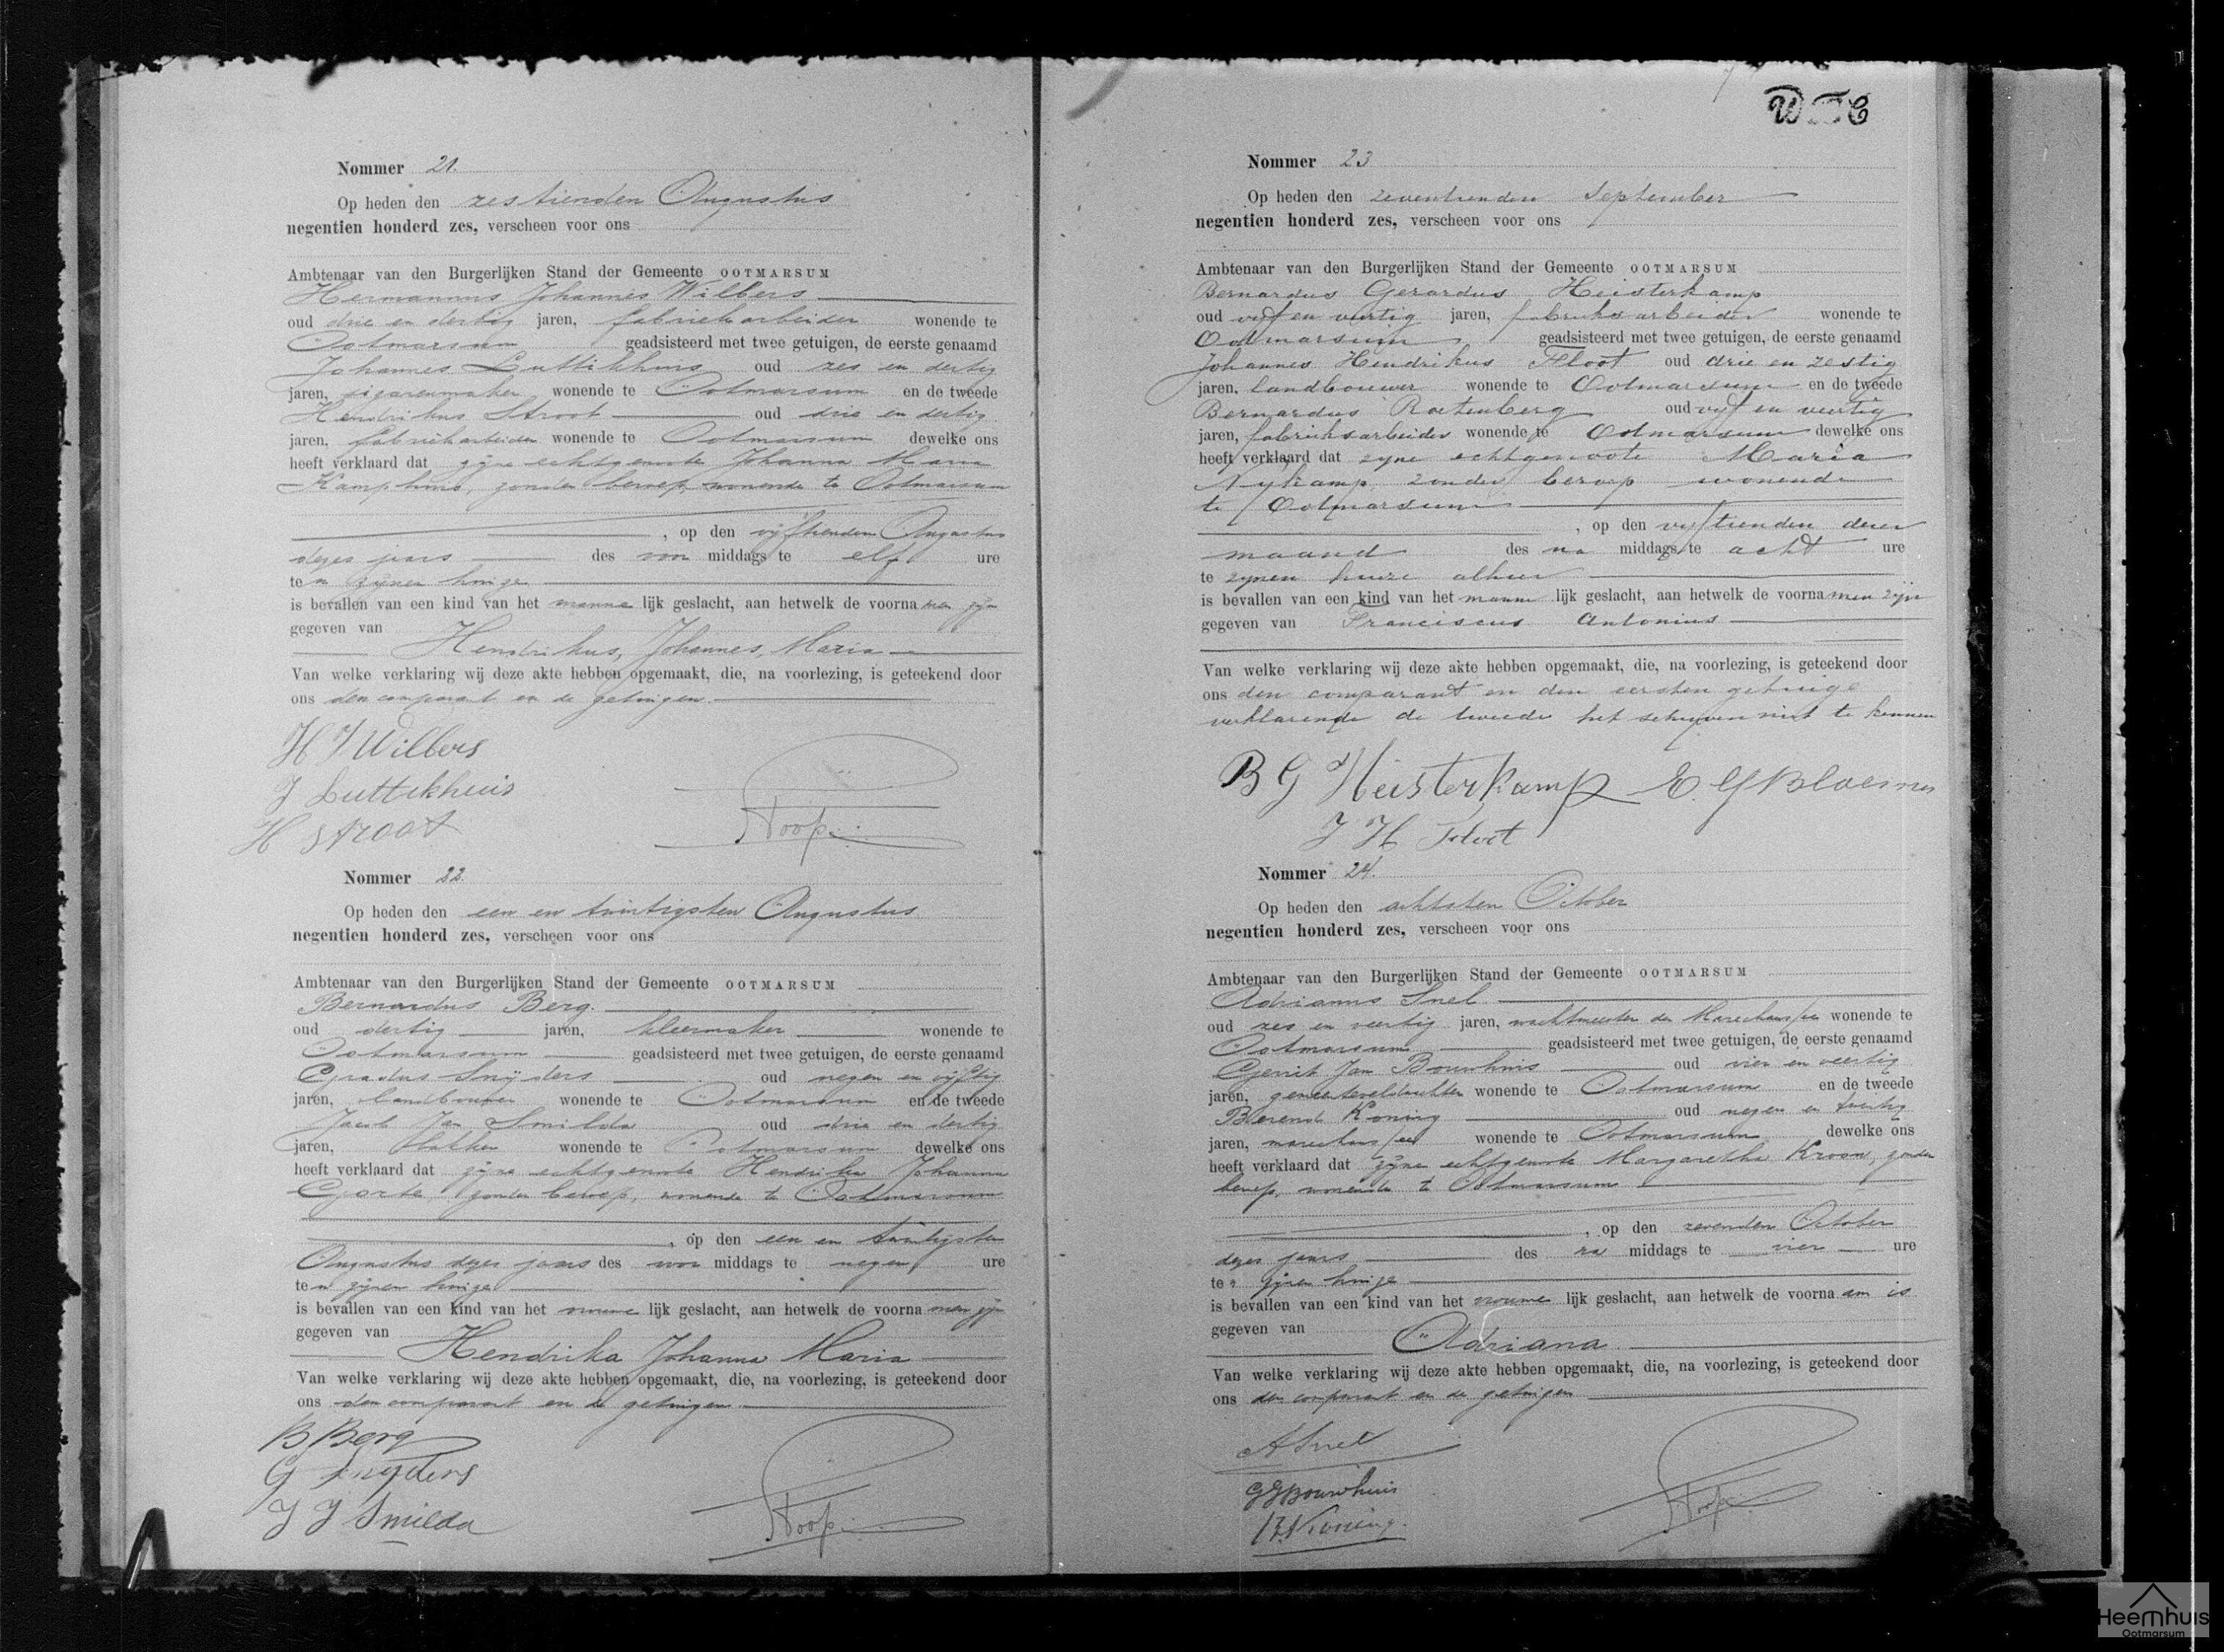 Nommer 21.
Op heden den zestienden Augustus
negentien honderd zes, verscheen voor ons
Ambtenaar van den Burgerlijken Stand der Gemeente OOTMARSUM
Hermannus Johannes Wilbers
oud drie en dertig jaren, fabriekarbeider wonende te
Ootmarsum geadsisteerd met twee getuigen, de eerste genaamd
Johannes Luttikhuis oud zes en dertig
jaren, sigarenmaker wonende te Ootmarsum en de tweede
Hendrikus Stroot oud drie en dertig
jaren, fabriekarbeider wonende te Ootmarsum dewelke ons
heeft verklaard dat zijne echtgenoote Johanna Maria
Kamphuis, zonder beroep, wonende te Ootmarsum
, op den vijftienden Augustus
dezes jaars des voor middags te elf ure
ten zijnen huize
is bevallen van een kind van het manne lijk geslacht, aan hetwelk de voorna men zijn
gegeven van
Hendrikus, Johannes, Maria
Van welke verklaring wij deze akte hebben opgemaakt, die, na voorlezing, is geteekend door
ons den comparant en de getuigen.
H J Wilbers
J Luttekhuis
H Stroot
Nommer 22.
Op heden den een en twintigsten Augustus
negentien honderd zes, verscheen voor ons
Ambtenaar van den Burgerlijken Stand der Gemeente OOTMARSUM
Bernardus Berg.
oud dertig jaren, kleermaker wonende te
Ootmarsum geadsisteerd met twee getuigen, de eerste genaamd
Gradus Snijders oud negen en vijftig
jaren, landbouwer wonende te Ootmarsum en de tweede
Jacob Jan Smilda oud drie en dertig
jaren, bakker wonende te Ootmarsum dewelke ons
heeft verklaard dat zijne echtgenoote Hendrika Johanna
zonder beroep, wonende te Ootmarsum
, op den een en twintigsten
Augustus dezes jaars des voor middags te negen ure
ten zijnen huize
is bevallen van een kind van het vrouwe lijk geslacht, aan hetwelk de voorna men zijn
gegeven van
Hendrika Johanna Maria
Van welke verklaring wij deze akte hebben opgemaakt, die, na voorlezing, is geteekend door
ons den comparant en de getuigen.
B Berg
G Snijders
J J Smilda
Nommer 23
Op heden den zeventienden September
negentien honderd zes, verscheen voor ons
Ambtenaar van den Burgerlijken Stand der Gemeente OOTMARSUM
Bernardus Gerardus Heisterkamp
oud vijf en veertig jaren, fabrieksarbeider wonende te
Ootmarsum geadsisteerd met twee getuigen, de eerste genaamd
Johannes Hendrikus Floot oud drie en zestig
jaren, landbouwer wonende te Ootmarsum en de tweede
Bernardus Rotenberg oud vijf en veertig
jaren, fabrieksarbeider wonende te Ootmarsum dewelke ons
heeft verklaard dat zijne echtgenoote Maria
Nijkamp zonder beroep wonende
te Ootmarsum
, op den vijftienden dezer
maand des na middags te acht ure
te zijnen huize alhier
is bevallen van een kind van het manne lijk geslacht, aan hetwelk de voorna men zijn
gegeven van Franciscus Antonius
Van welke verklaring wij deze akte hebben opgemaakt, die, na voorlezing, is geteekend door
ons den comparant en den eersten getuige
verklarende de tweede het schrijven niet te kennen
B G Heisterkamp
J H Floot
Nommer 24.
Op heden den achtsten October
negentien honderd zes, verscheen voor ons
Ambtenaar van den Burgerlijken Stand der Gemeente OOTMARSUM
Adrianus Snel
oud zes en veertig jaren, wachtmeester der Marechaussee wonende te
Ootmarsum geadsisteerd met twee getuigen, de eerste genaamd
Gerrit Jan Bouwhuis oud vier en veertig
jaren, gemeenteveldwachter wonende te Ootmarsum en de tweede
Berend Koning oud negen en twintig
jaren, marechaussee wonende te Ootmarsum dewelke ons
heeft verklaard dat zijne echtgenoote Margaretha Kroon, zonder
beroep, wonende te Ootmarsum
, op den zevenden October
dezes jaars des na middags te vier ure
ten zijnen huize
is bevallen van een kind van het vrouwe lijk geslacht, aan hetwelk de voorna am is
gegeven van
Adriana.
Van welke verklaring wij deze akte hebben opgemaakt, die, na voorlezing, is geteekend door
ons den comparant en de getuigen
A Snel
G J Bouwhuis
B Koning.
Heemhuis
Ootmarsum